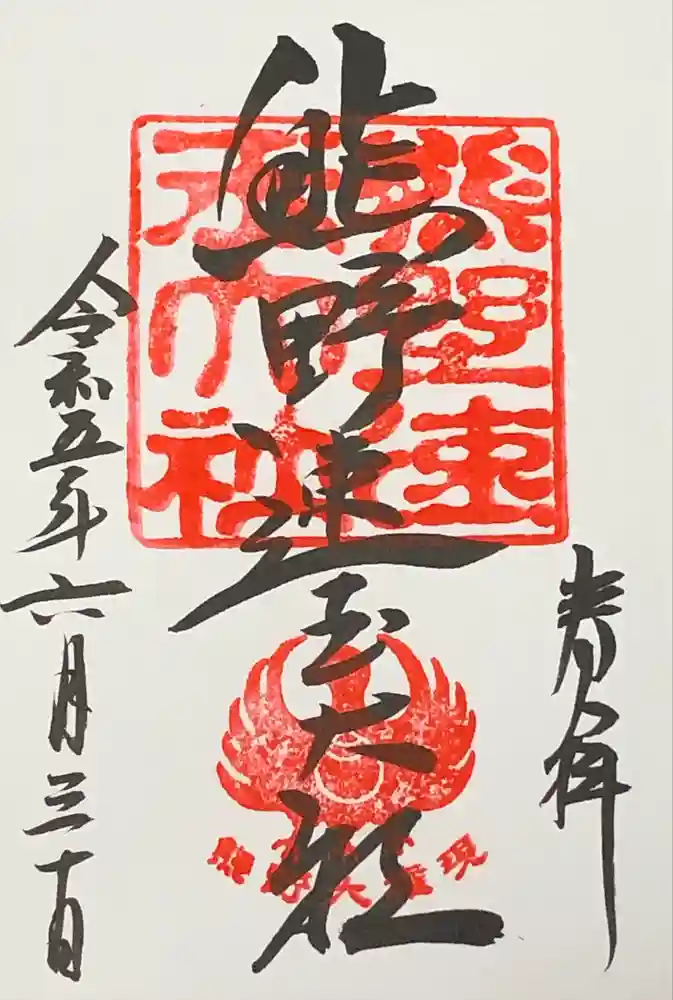 奉拝
熊野速玉大社
令和五年六月三十日
熊野速玉大社
熊野大権現